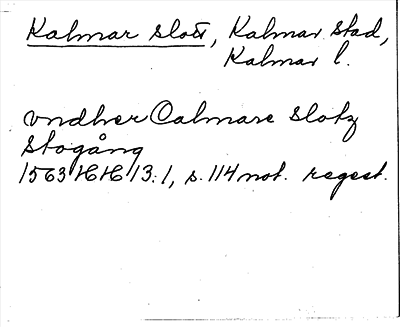 Kalmar slott, Kalmar stad,
Kalmar l.
vndher Calmare slotz
stogång
1563 HH 13:1, s. 114 not. regest.